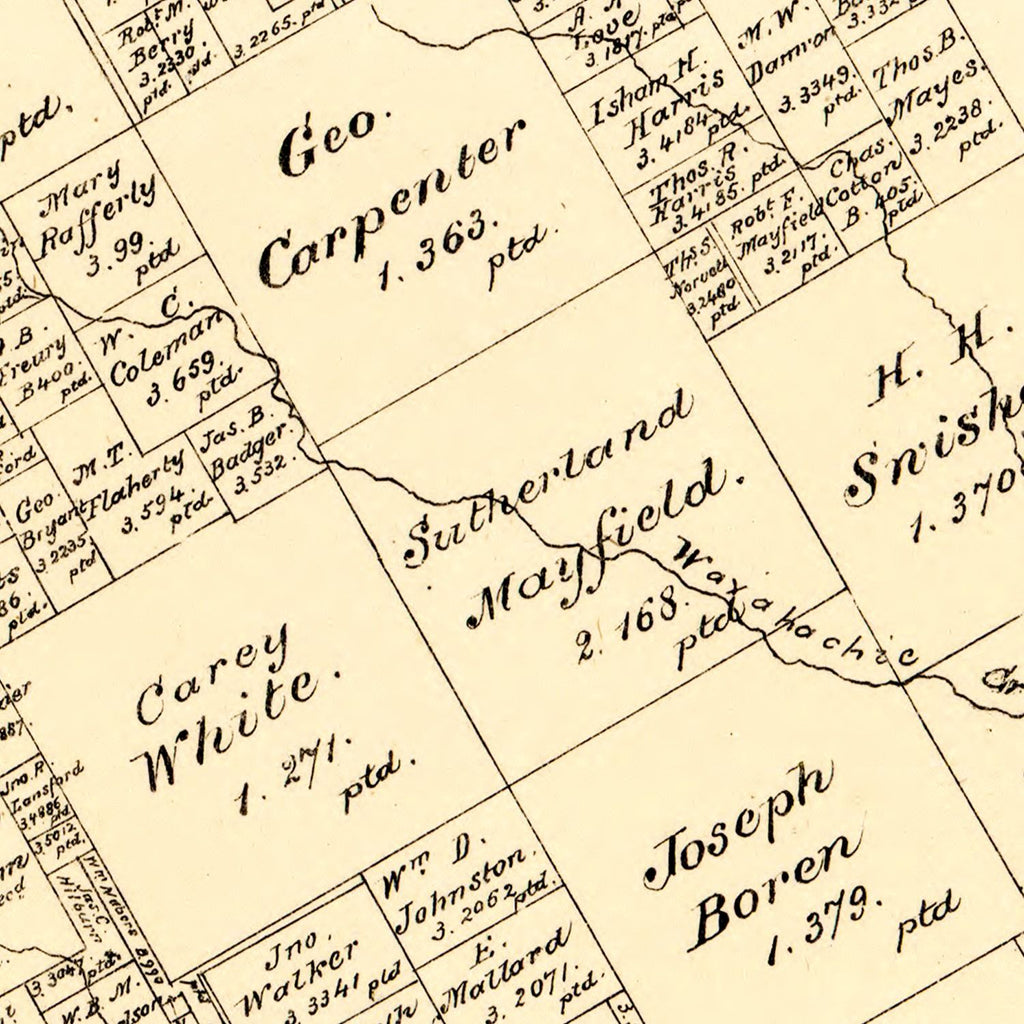 Robt M.
Berry
3.2330.
ptd.
3.2265. ptd
A.
Love
3.1817. ptd
Isham H.
Harris
3.4184. ptd.
M. W.
Damron
3.3349.
ptd.
Thos. B.
Mayes.
3.2238.
ptd.
ptd.
Geo.
Carpenter
1. 363.
ptd.
Mary
Rafferly
3.99.
ptd
Thos. R.
Harris
3.4185. ptd.
Chas.
Cotton
B. 405.
ptd
Robt. F.
Mayfield
3.2117.
ptd.
Ths S.
Norvell
3.2480
ptd
W. C.
Coleman
3.659.
ptd.
B.
B 400.
ptd.
H. H.
1. 370
Jas. B.
Badger.
3.532.
M. T.
Flaherty
3.594.
ptd.
Geo.
Bryant
3.2235.
ptd
ptd.
Sutherland
Mayfield.
2. 168.
ptd
Waxahachie
Carey
White.
1. 271.
ptd.
Jno. R.
Lansford
3.4886
ptd
3.5012
ptd.
Wm Nabers B.990
Jas. C.
Hilburn
Joseph
Boren
1. 379.
ptd
Wm D.
Johnston.
3. 2062 ptd.
Jno.
Walker
3. 3341 ptd
E.
Mallard
3. 2071.
ptd.
3.3047. ptd.
W. B. M.
3.